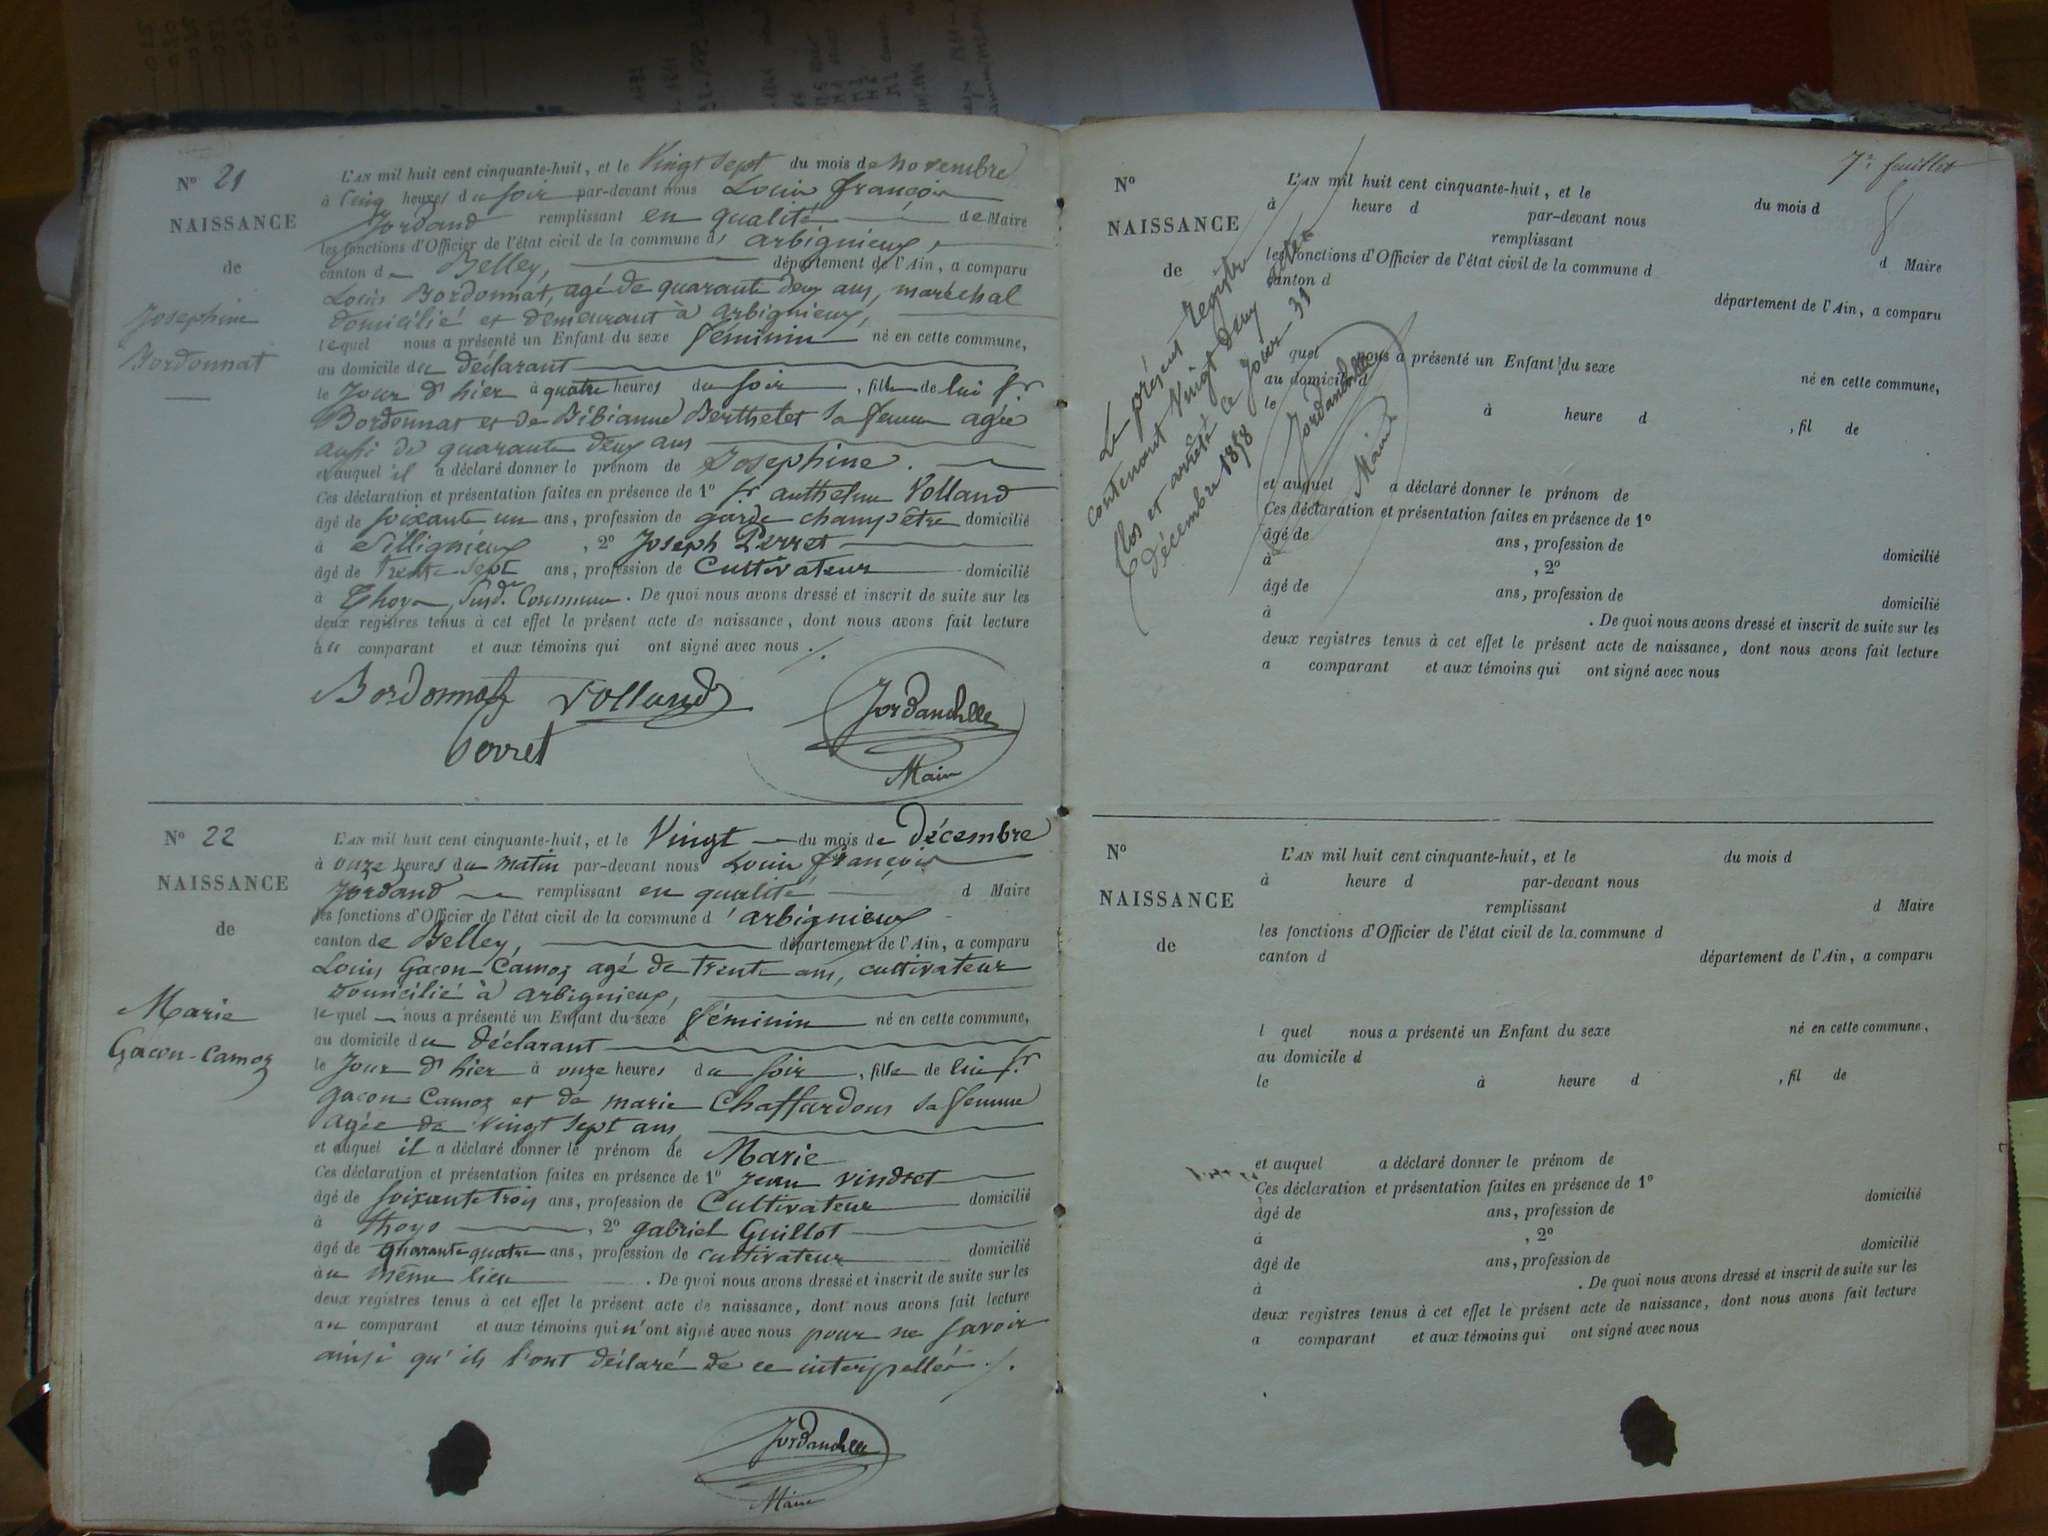 N° 21
NAISSANCE
de
Josephine
Bordonnat
L'AN mil huit cent cinquante-huit, et le Vingt sept du mois de novembre
à Cinq heures du soir par-devant nous Louis françois
Jordand remplissant en qualité de Maire
les fonctions d'Officier de l'état civil de la commune d'arbignieux,
canton de Belley, département de l'Ain, a comparu
Louis Bordonnat, agé de quarante deux ans, maréchal
domicilié et demeurant à arbignieux,
lequel nous a présenté un Enfant du sexe féminin né en cette commune,
au domicile du déclarant
le Jour d'hier à quatre heures du soir, fille de lui sr
Bordonnat et de Bibianne Berthelet sa femme agée
aussi de quarante deux ans
et auquel il a déclaré donner le prénom de Josephine.
Ces déclaration et présentation faites en présence de 1° sr anthelme Volland
âgé de soixante un ans, profession de garde champêtre domicilié
à Sillignieux, 2° Joseph Perret
âgé de trente sept ans, profession de Cultivateur domicilié
à Thoys, susd. Commune. De quoi nous avons dressé et inscrit de suite sur les
deux registres tenus à cet effet le présent acte de naissance, dont nous avons fait lecture
au comparant et aux témoins qui ont signé avec nous ./.
Bordonnat Volland
Perret
Jordand
Maire
N° 22
NAISSANCE
de
Marie
Gacon-Camoz
L'AN mil huit cent cinquante-huit, et le Vingt du mois de décembre
à onze heures du matin par-devant nous Louis françois
Jordand remplissant en qualité d Maire
les fonctions d'Officier de l'état civil de la commune d'arbignieux
canton de Belley, département de l'Ain, a comparu
Louis Gacon-Camoz agé de trente ans, cultivateur
domicilié à arbignieux,
lequel nous a présenté un Enfant du sexe féminin né en cette commune,
au domicile du déclarant
le Jour d'hier à onze heures du soir, fille de lui sr
gacon Camoz et de marie Chaffardon sa femme
agée de vingt sept ans,
et auquel il a déclaré donner le prénom de Marie
Ces déclaration et présentation faites en présence de 1° Jean vindret
âgé de soixante trois ans, profession de Cultivateur domicilié
à thoys, 2° gabriel Guillot
âgé de quarante quatre ans, profession de cultivateur domicilié
au même lieu. De quoi nous avons dressé et inscrit de suite sur les
deux registres tenus à cet effet le présent acte de naissance, dont nous avons fait lecture
au comparant et aux témoins qui n'ont signé avec nous pour ne savoir
ainsi qu'ils l'ont déclaré de ce interpellés ./.
Jordand
Maire
7e feuillet
N°
NAISSANCE
de
L'AN mil huit cent cinquante-huit, et le du mois d
à heure d par-devant nous
remplissant d Maire
les fonctions d'Officier de l'état civil de la commune d
canton d département de l'Ain, a comparu
quel nous a présenté un Enfant du sexe né en cette commune,
au domicile d
le à heure d , fil de
et auquel a déclaré donner le prénom de
Ces déclaration et présentation faites en présence de 1°
âgé de ans, profession de domicilié
à , 2°
âgé de ans, profession de domicilié
à . De quoi nous avons dressé et inscrit de suite sur les
deux registres tenus à cet effet le présent acte de naissance, dont nous avons fait lecture
a comparant et aux témoins qui ont signé avec nous
Le présent registre
contenant Vingt deux actes
Clos et arrêté ce Jour 31
décembre 1858
Jordand
Maire
N°
NAISSANCE
de
L'AN mil huit cent cinquante-huit, et le du mois d
à heure d par-devant nous
remplissant d Maire
les fonctions d'Officier de l'état civil de la commune d
canton d département de l'Ain, a comparu
l quel nous a présenté un Enfant du sexe né en cette commune,
au domicile d
le à heure d , fil de
et auquel a déclaré donner le prénom de
Ces déclaration et présentation faites en présence de 1°
âgé de ans, profession de domicilié
à , 2°
âgé de ans, profession de domicilié
à . De quoi nous avons dressé et inscrit de suite sur les
deux registres tenus à cet effet le présent acte de naissance, dont nous avons fait lecture
a comparant et aux témoins qui ont signé avec nous